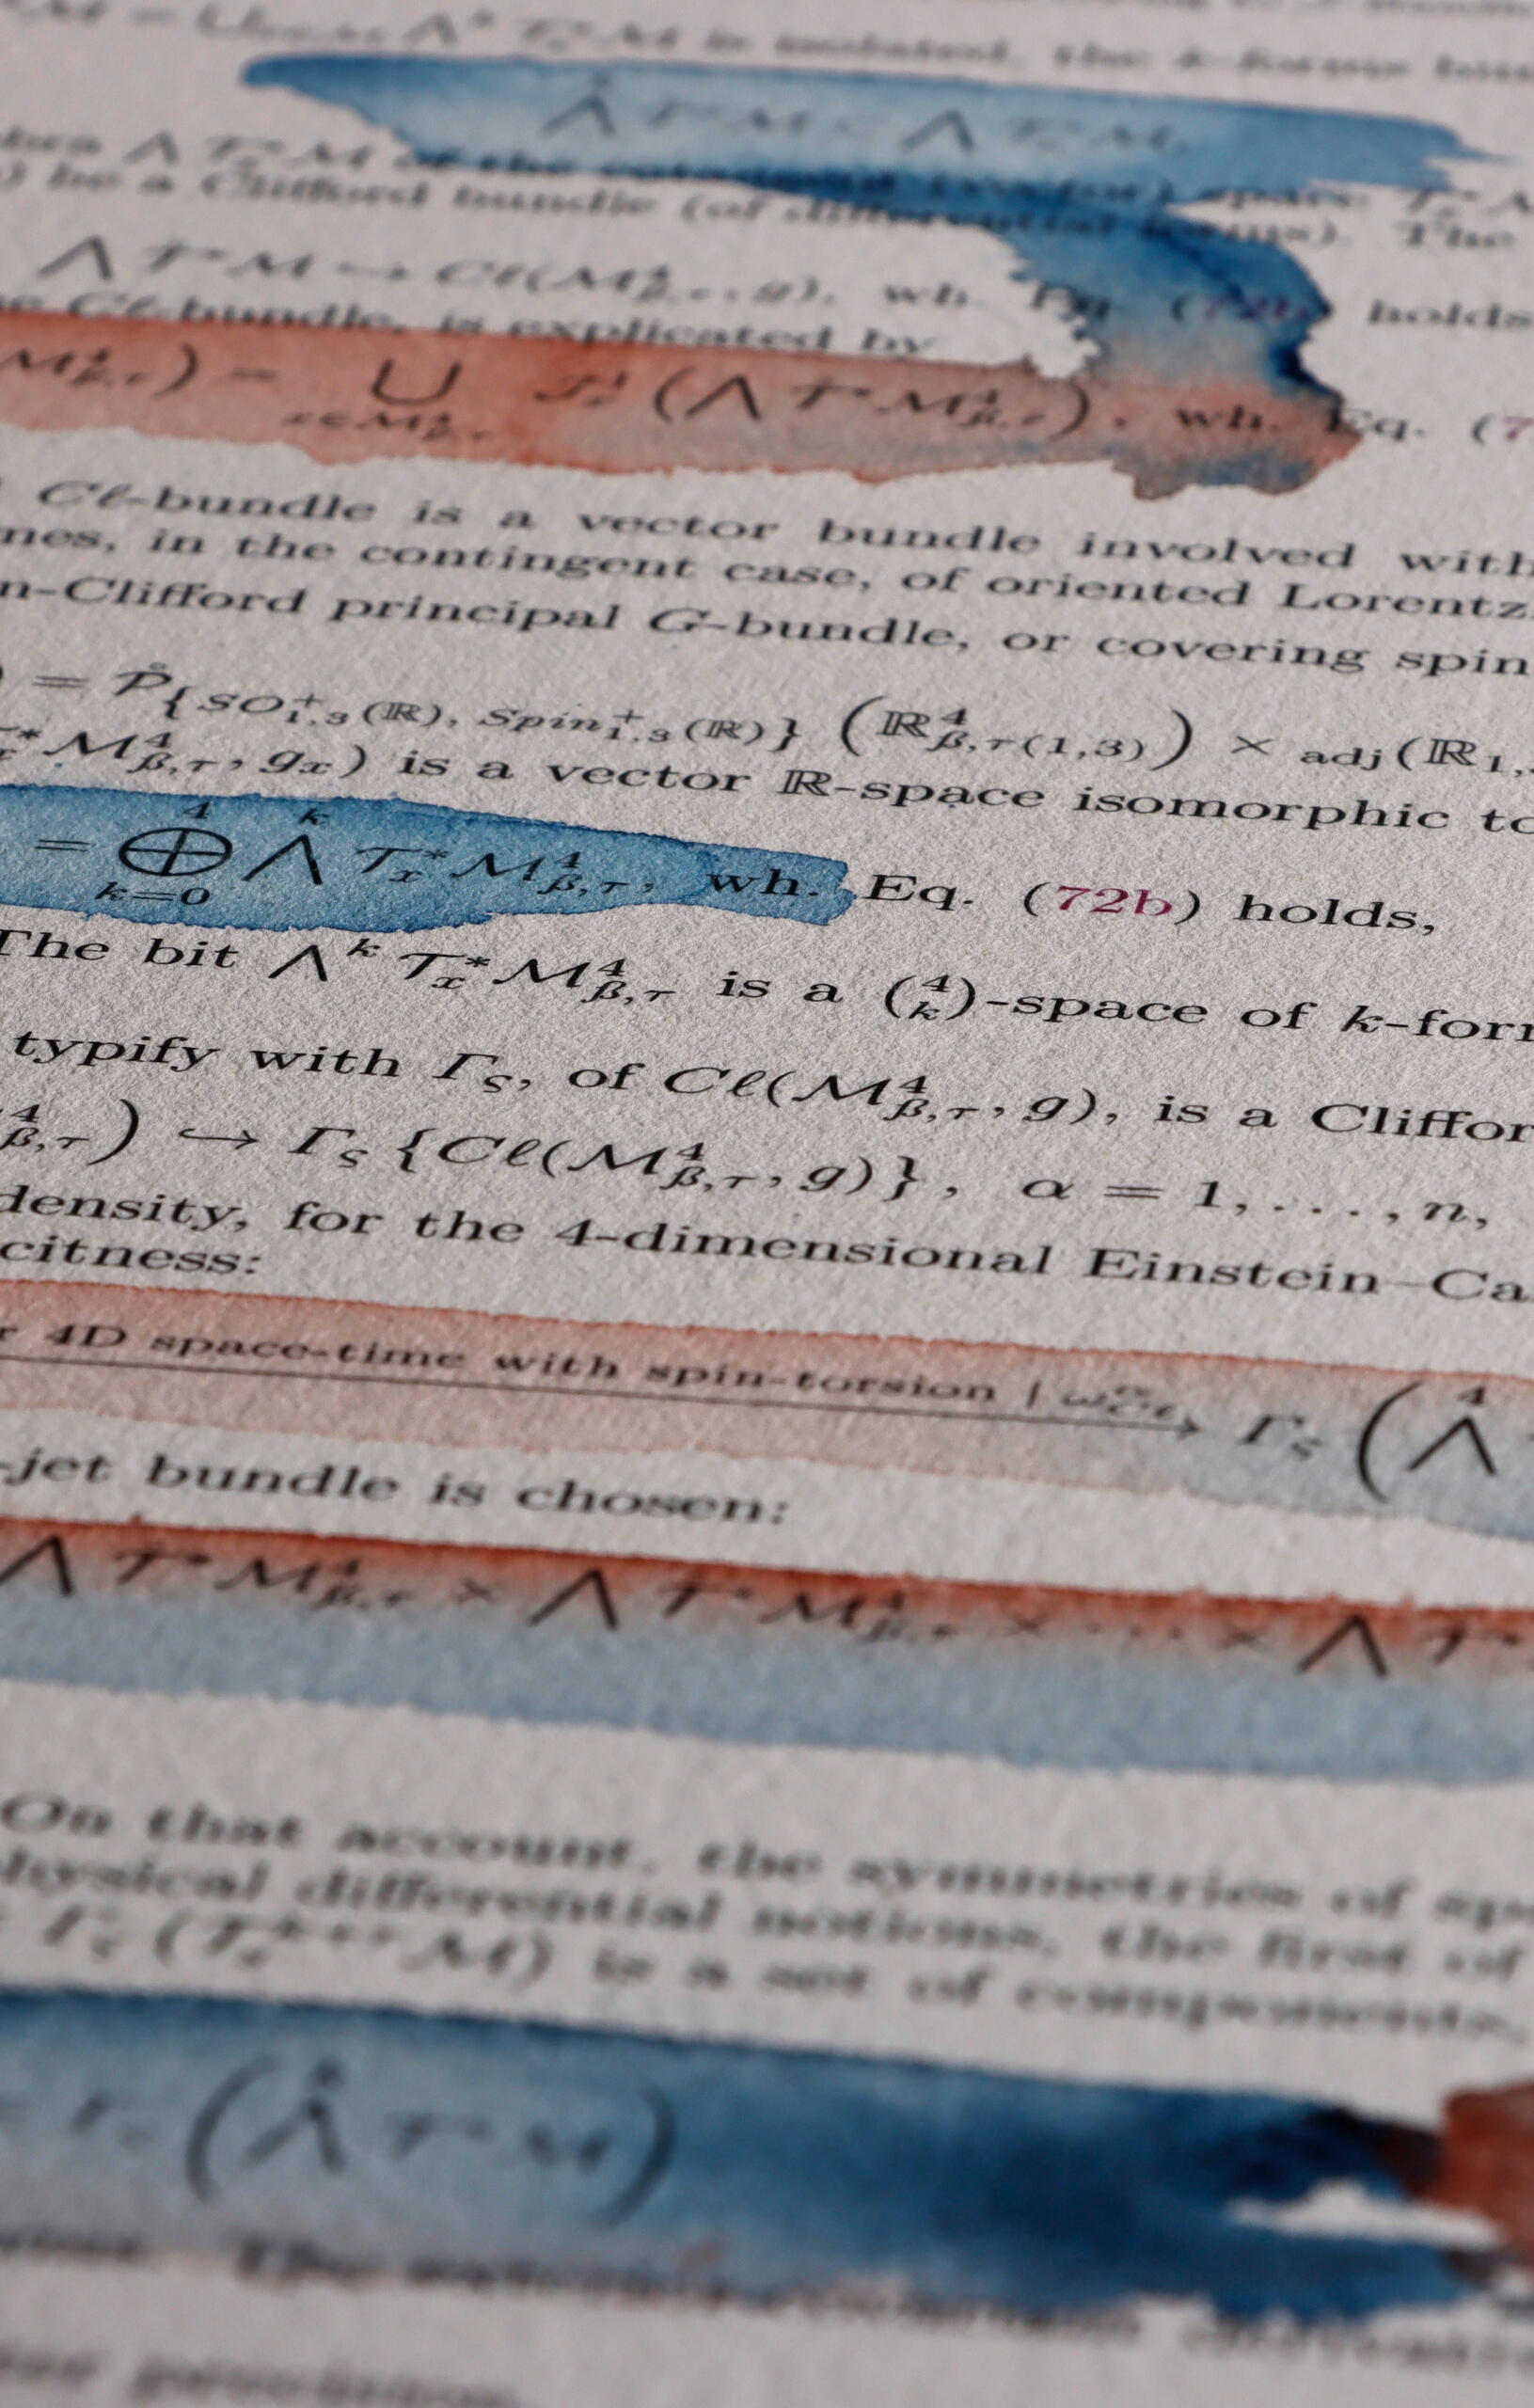 is a the k-forms
⋀ T*M ⊂ ⋀ T*M,
⋀ T*M of the cotangent (vector) space T*
) be a Clifford bundle (of differential forms). The
⋀ T*M → Cℓ(M⁴_β,τ, g), wh. Eq. (72b) holds
Cℓ-bundle, is explicated by
M⁴_β,τ) = ⋃_x∈M⁴_β,τ (⋀ T*M⁴_β,τ), wh. Eq. (7
Cℓ-bundle is a vector bundle involved with
nes, in the contingent case, of oriented Lorentz
n-Clifford principal G-bundle, or covering spin
) = P̊_{SO⁺_1,3(ℝ), Spin⁺_1,3(ℝ)} (ℝ⁴_β,τ(1,3)) × adj(ℝ_1,
*M⁴_β,τ, g_x) is a vector ℝ-space isomorphic to
= ⊕_{k=0}^4 ⋀^k T*_x M⁴_β,τ, wh. Eq. (72b) holds,
The bit ⋀^k T*_x M⁴_β,τ is a (4 k)-space of k-for
typify with Γ_ς, of Cℓ(M⁴_β,τ, g), is a Cliffor
⁴_β,τ) ↪ Γ_ς{Cℓ(M⁴_β,τ, g)}, α = 1, . . . , n,
density, for the 4-dimensional Einstein–Ca
citness:
r 4D space-time with spin-torsion | ω → Γ_ς (⋀^4
-jet bundle is chosen:
⋀ T*M⁴_β,τ × ⋀ T*M⁴_β,τ × · · · × ⋀ T*
On that account, the symmetries of sp
hysical differential notions, the first of
M) is a set of components,
= Γ_ς (⋀ T*M)
The